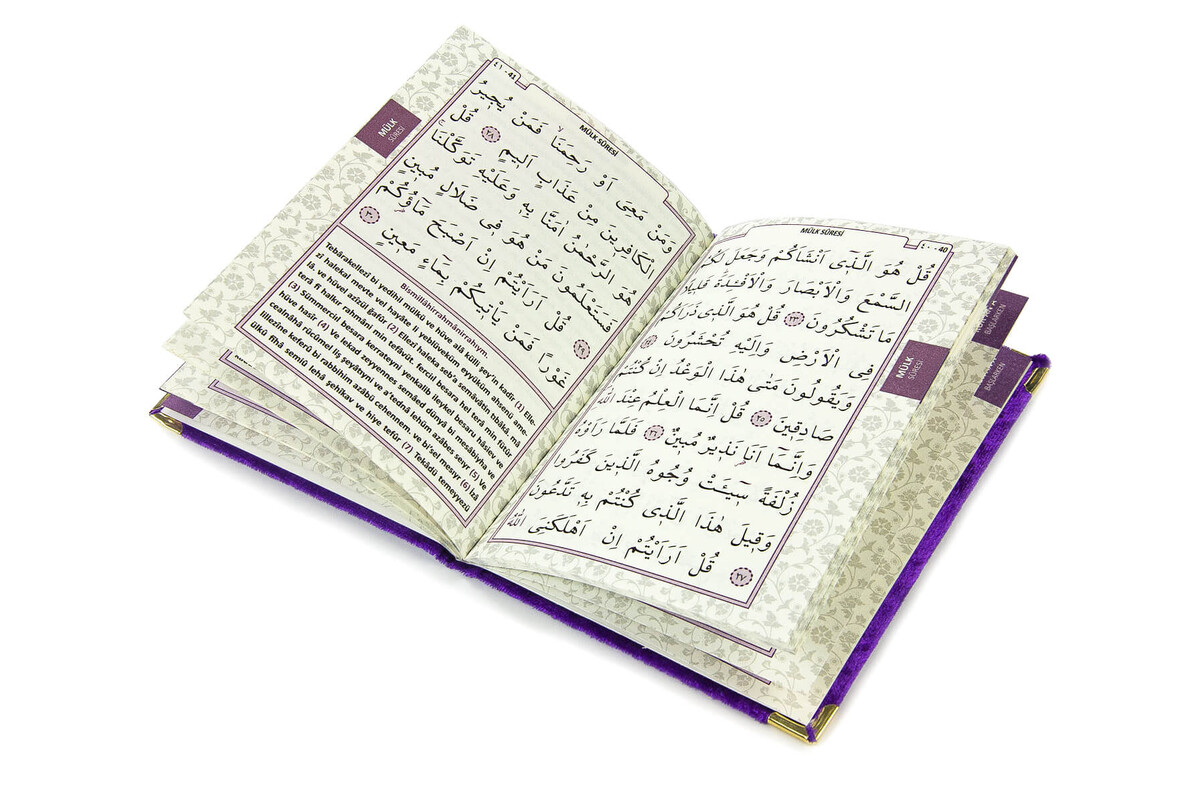 MÜLK SÛRESİ
٤٠ - 40
قُلْ هُوَ الَّذٖٓى اَنْشَاَكُمْ وَجَعَلَ لَكُمُ
السَّمْعَ وَالْاَبْصَارَ وَالْاَفْـِٔدَةَ قَلٖيلًا
مَا تَشْكُرُونَ ٢٣ قُلْ هُوَ الَّذٖى ذَرَاَكُمْ
فِى الْاَرْضِ وَاِلَيْهِ تُحْشَرُونَ ٢٤
وَيَقُولُونَ مَتٰى هٰذَا الْوَعْدُ اِنْ كُنْتُمْ
صَادِقٖينَ ٢٥ قُلْ اِنَّمَا الْعِلْمُ عِنْدَ اللّٰهِ
وَاِنَّمَٓا اَنَا۬ نَذٖيرٌ مُبٖينٌ ٢٦ فَلَمَّا رَاَوْهُ
زُلْفَةً سٖٓيـَٔتْ وُجُوهُ الَّذٖينَ كَفَرُوا
وَقٖيلَ هٰذَا الَّذٖى كُنْتُمْ بِهٖ تَدَّعُونَ
٢٧ قُلْ اَرَاَيْتُمْ اِنْ اَهْلَكَنِىَ اللّٰهُ
MÜLK
SÛRESİ
BAŞLARKEN
BAŞLARKEN
٤١ - 41
MÜLK SÛRESİ
وَمَنْ مَعِىَ اَوْ رَحِمَنَاۙ فَمَنْ يُجٖيرُ
الْكَافِرٖينَ مِنْ عَذَابٍ اَلٖيمٍ ٢٨ قُلْ
هُوَ الرَّحْمٰنُ اٰمَنَّا بِهٖ وَعَلَيْهِ تَوَكَّلْنَاۚ
فَسَتَعْلَمُونَ مَنْ هُوَ فٖى ضَلَالٍ مُبٖينٍ
٢٩ قُلْ اَرَاَيْتُمْ اِنْ اَصْبَحَ مَٓاؤُ۬كُمْ
غَوْرًا فَمَنْ يَأْتٖيكُمْ بِمَٓاءٍ مَعٖينٍ ٣٠
MÜLK
SÛRESİ
Bismillâhirrahmânirrahıym.
Tebârakellezî bi yedihil mülkü ve hüve alâ külli şey'in kadîr (1) Elle-
zî halekal mevte vel hayâte li yeblüveküm eyyüküm ahsenü ame-
lâ. ve hüvel azîzül ğafûr (2) Ellezî haleka seb'a semâvâtin tıbâkâ mâ
terâ fî halkır rahmâni min tefâvüt. ferciıl besara hel terâ min fütûr
(3) Sümmerciıl besara kerrateyni yenkalib ileykel besaru hâsiev ve
hüve hasîr (4) Ve lekad zeyyennes semâed dünyâ bi mesâbiyha ve
cealnâhâ rücûmel liş şeyâtıyni ve a'tednâ lehüm azâbes seıyr (5) Ve
lillezîne keferû bi rabbihim azâbü cehennem. ve bi'sel mesıyr (6) İzâ
ülkû fîhâ semiû lehâ şehîkav ve hiye tefûr (7) Tekâdü temeyyezü